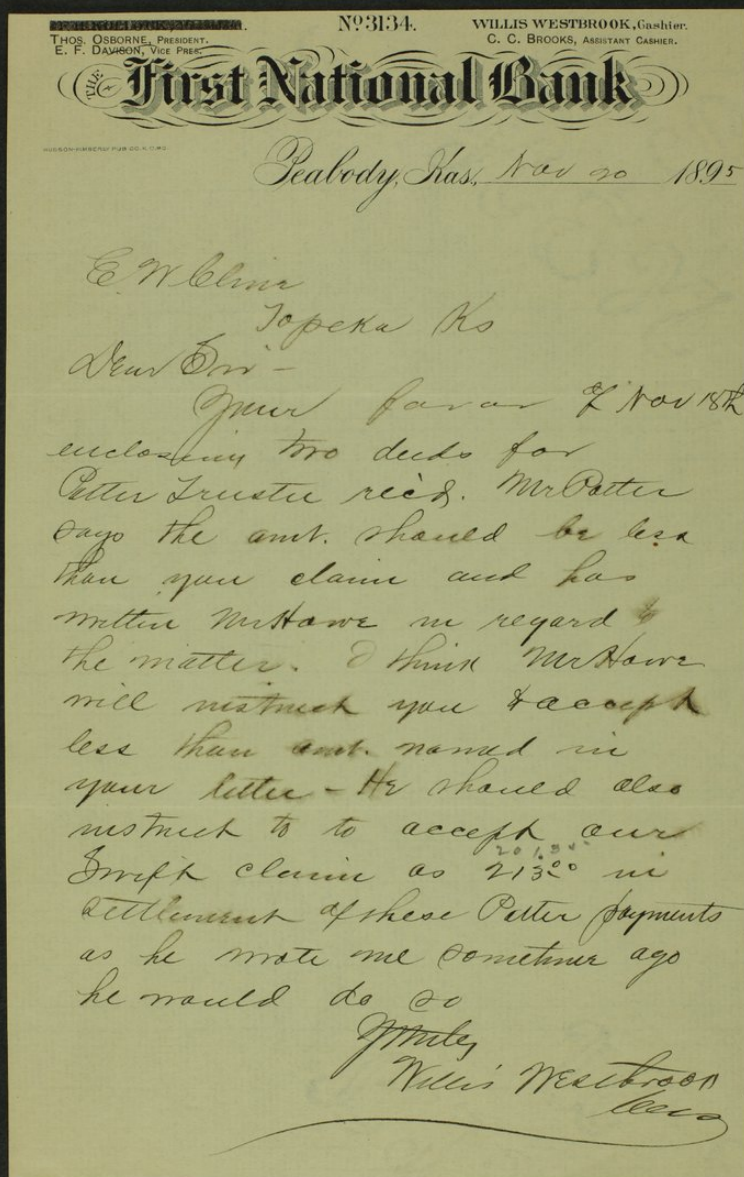 No 3134.
WILLIS WESTBROOK, Cashier.
THOS. OSBORNE, PRESIDENT.
C. C. BROOKS, ASSISTANT CASHIER.
E. F. DAVISON, VICE PRES.
THE First National Bank
HUDSON-KIMBERLY PUB CO. K.C. MO.
Peabody, Kas., Nov 20 1895
E. W. Cline
Topeka Ks
Dear Sir -
Your favor of Nov 18th
enclosing two deeds for
Potter Trustee rec'd. Mr Potter
says the amt. should be less
than you claim and has
written Mr Howe in regard to
the matter. I think Mr Howe
will instruct you to accept
less than amt. named in
your letter - He should also
instruct to to accept our
Swift claim as 213.00 in
settlement of these Potter payments
as he wrote me sometime ago
he would do so
Y truly
Willis Westbrook